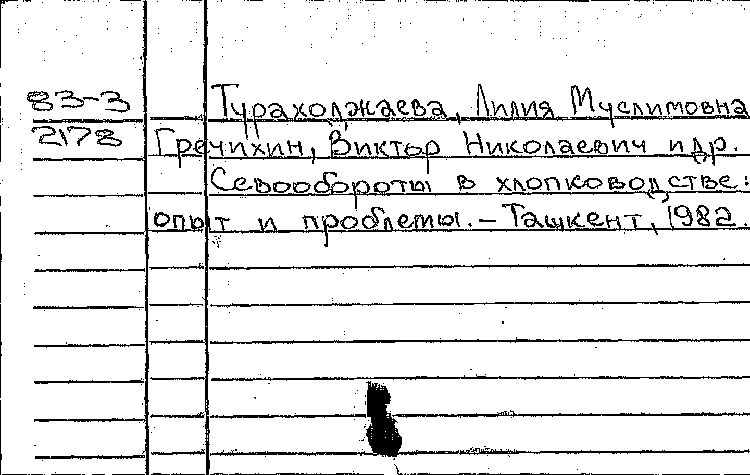 83-3
2178
Турахолжаева, Лилия Муслимовна
Гречихин, Виктор Николаевич и др.
Севообороты в хлопководстве:
опыт и проблемы. – Ташкент, 1982.